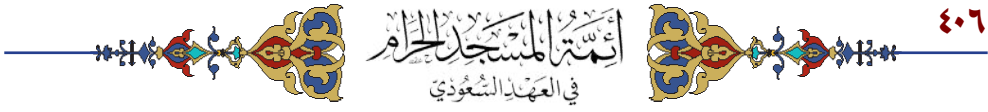 ٤٠٦
أَئِمَّةُ المَسْجِدِ الحَرَامِ
في العَهْدِ السُّعُودِيّ